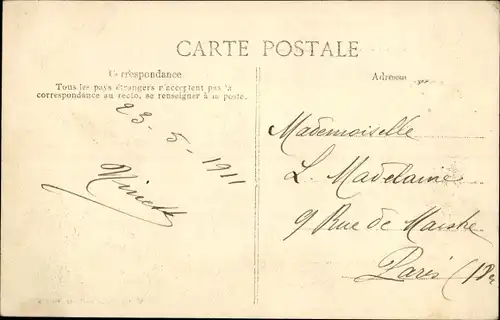 CARTE POSTALE
Correspondance
Tous les pays étrangers n'acceptent pas la
correspondance au recto, se renseigner à la poste.
Adresse
23-5-1911
Mademoiselle
L. Madelaine
9 Rue de
Paris